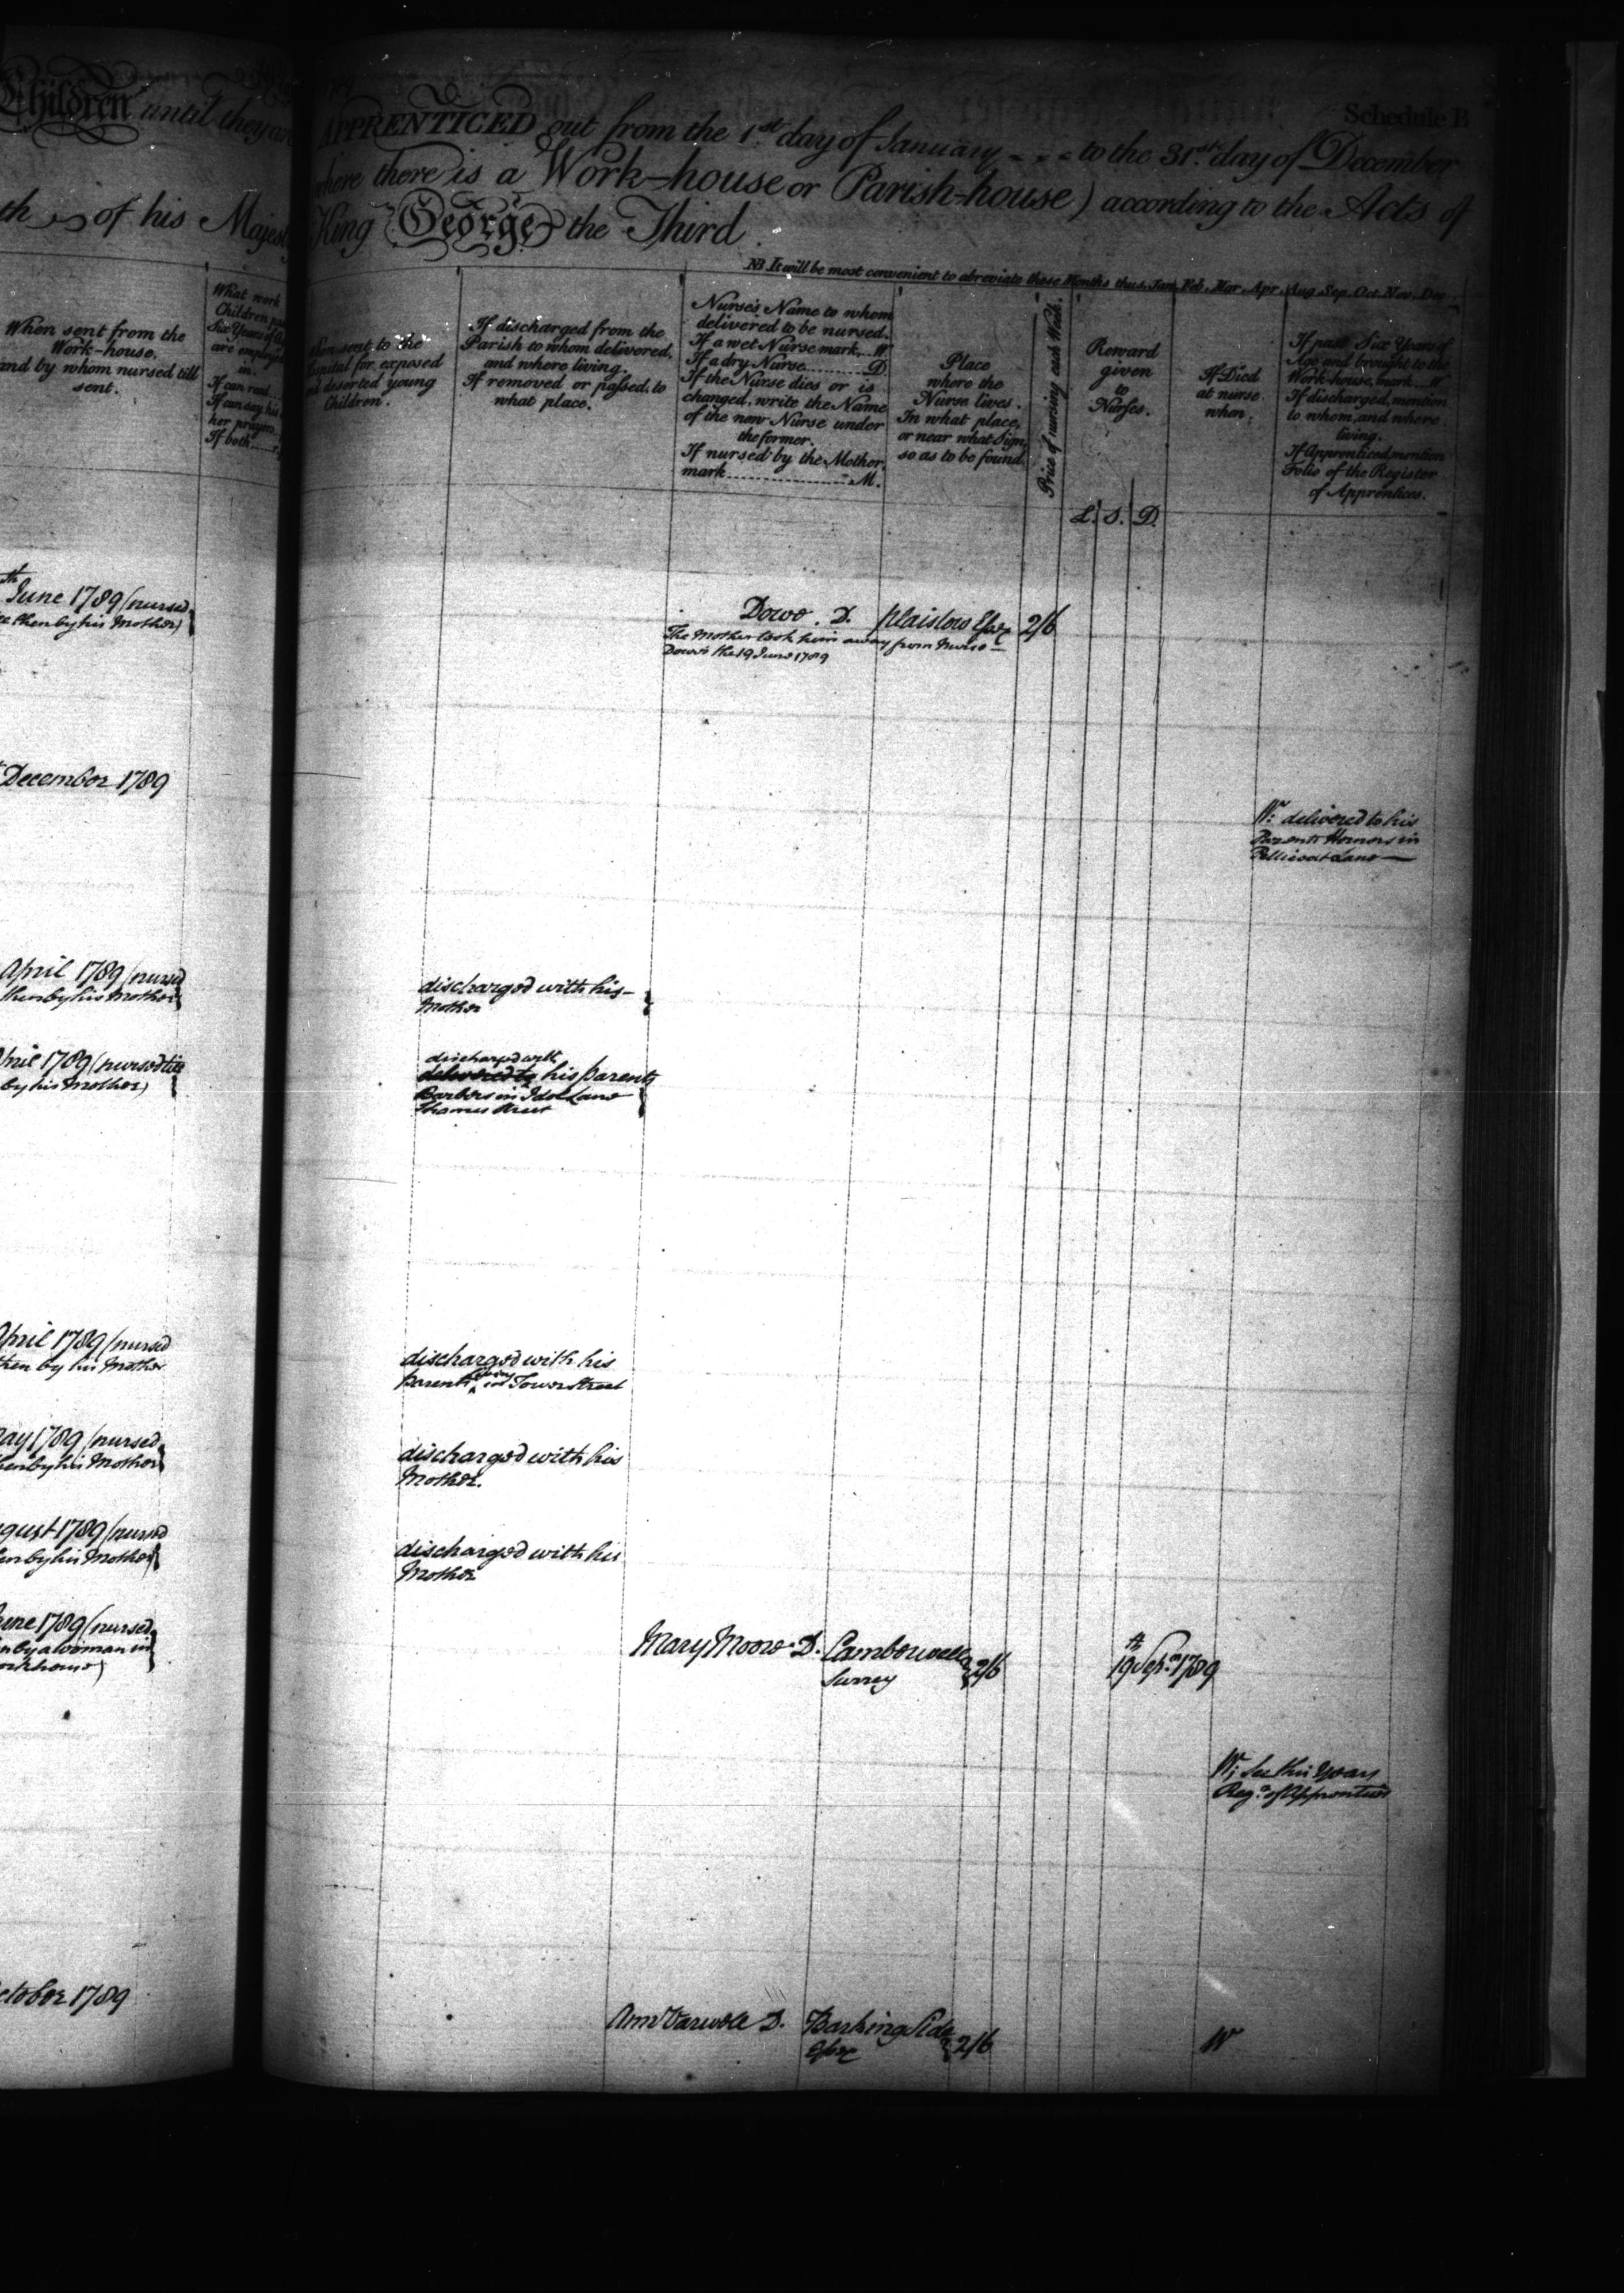 Schedule B
Children until they are
APPRENTICED out from the 1st day of January to the 31st day of December
where there is a Work-house or Parish-house) according to the Acts of
th of his Majesty
King George the Third.
NB It will be most convenient to abreviate these Months thus, Jan, Feb, Mar, Apr, Aug, Sep, Oct, Nov, Dec
When sent from the
Work-house,
and by whom nursed till
sent.
What work
Children
Six Years of
are employed
in.
If can read
If can say his
her prayers
If both
When sent to the
Hospital for exposed
and deserted young
Children.
If discharged from the
Parish to whom delivered,
and where living.
If removed or passed, to
what place.
Nurse's Name to whom
delivered to be nursed.
If a wet Nurse mark...W
If a dry Nurse..........D
If the Nurse dies or is
changed, write the Name
of the new Nurse under
the former.
If nursed by the Mother,
mark..................M.
Place
where the
Nurse lives.
In what place,
or near what Sign,
so as to be found.
Price of nursing each Week.
Reward
given
to
Nurses.
L. S. D.
If Died
at nurse
when.
If past Six Years of
Age and brought to the
Work-house, mark...W
If discharged, mention
to whom, and where
living.
If Apprenticed, mention
Folio of the Register
of Apprentices.
th June 1789 (nursed
then by his Mother)
Dowo. D. Plaistow Essex 2/6
The Mother took him away from Nurse
Dowo's the 19 June 1789
December 1789
W: delivered to his
Parents in
Petticoat Lane
April 1789 (nursed
then by his Mother)
discharged with his
Mother
April 1789 (nursed till
by his Mother)
discharged with
delivered to his parents
Barbers in Idol Lane
Thames Street
April 1789 (nursed
then by his Mother
discharged with his
Parents living in Tower Street
May 1789 (nursed
then by his Mother)
discharged with his
Mother.
August 1789 (nursed
then by his Mother)
discharged with his
Mother
June 1789 (nursed
by a woman in
workhouse)
Mary Moore D. Camberwell 2/6
Surrey
19th Sepr. 1789
W; See this Years
Regr. of Apprentices
October 1789
Ann D. Barking Side 2/6
Essex
W